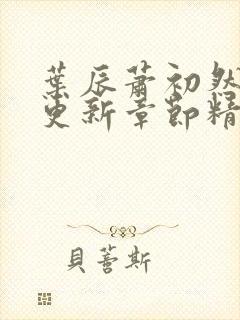 葉辰蕭初然
更新章節精
貝蕾斯